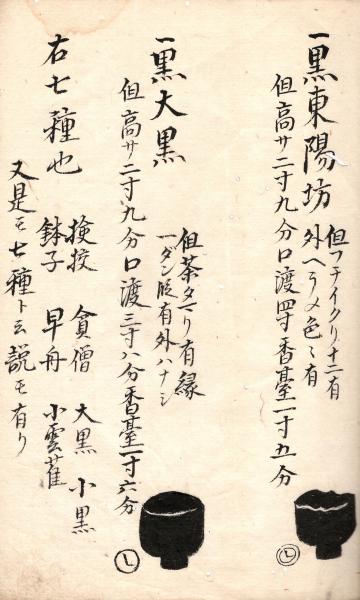 一黒東陽坊
但フチイクリ十二有
外ヘラメ色々有
但高サ二寸九分口渡四寸香臺一寸五分
一黒大黒
但茶タマリ有縁
一ダン
有外ハナシ
但高サ二寸九分口渡三寸八分香臺一寸六分
右七種也
検挍 貪僧 大黒 小黒
鉢子 早舟 小雲雀
又是モ七種ト云説モ有リ